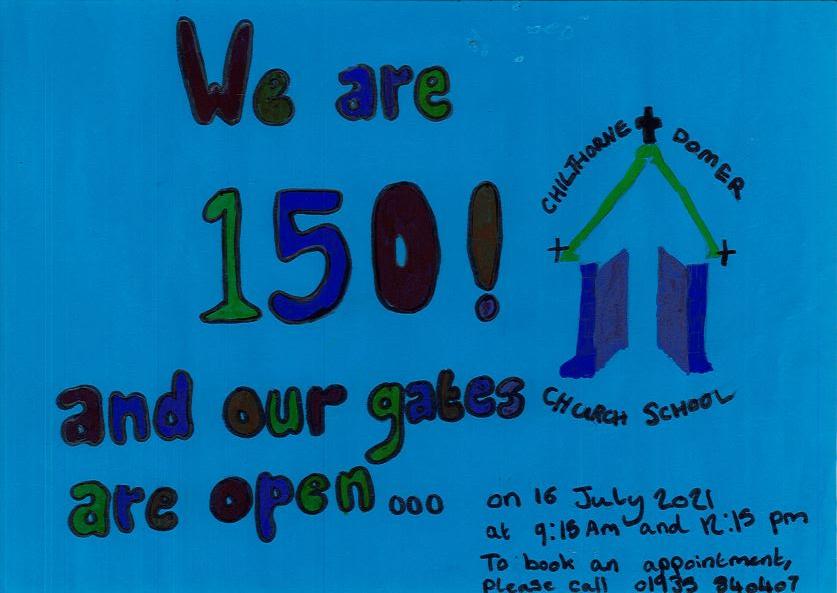 We are
150!
and our gates
are open...
CHILTHORNE DOMER
CHURCH SCHOOL
on 16 July 2021
at 9:15 Am and 12:15 pm
To book an appointment,
please call 01935 840407